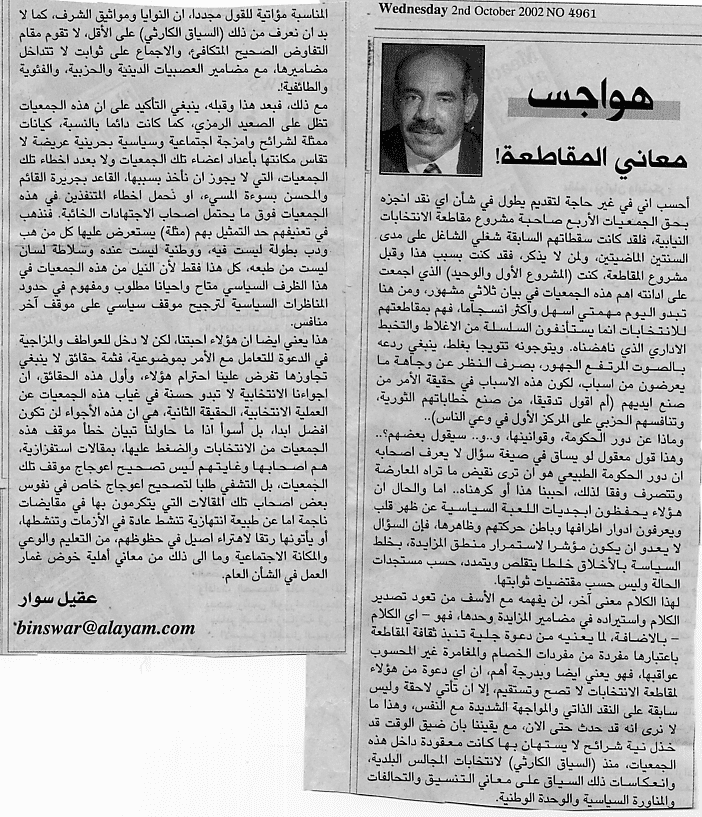 Wednesday 2nd October 2002 NO 4961
هواجس
معاني المقاطعة!
أحسب اني في غير حاجة لتقديم يطول في شأن اي نقد انجزه
بحق الجمعيات الأربع صاحبة مشروع مقاطعة الانتخابات
النيابية، فلقد كانت سقطاتهم السابقة شغلي الشاغل على مدى
السنتين الماضيتين، ولمن لا يذكر، فقد كنت بسبب هذا وقبل
مشروع المقاطعة، كنت (المشروع الأول والوحيد) الذي اجمعت
على ادانته اهم هذه الجمعيات في بيان ثلاثي مشهور، ومن هنا
تبدو اليوم مهمتي اسهل وأكثر انسجاما، فهم بمقاطعتهم
للانتخابات انما يستأنفون السلسلة من الاغلاط والتخبط
الاداري الذي ناهضناه. ويتوجونه تتويجا بغلط، ينبغي ردعه
بالصوت المرتفع الجهور، بصرف النظر عن وجاهة ما
يعرضون من اسباب، لكون هذه الاسباب في حقيقة الأمر من
صنع ايديهم (أم اقول تدقيقا، من صنع خطاباتهم الثورية،
وتنافسهم الحزبي على المركز الأول في وعي الناس)..
وماذا عن دور الحكومة، وقوانينها، و.. و.. سيقول بعضهم؟..
وهذا قول معقول لو يساق في صيغة سؤال لا يعرف اصحابه
ان دور الحكومة الطبيعي هو ان ترى نقيض ما تراه المعارضة
وتتصرف وفقا لذلك، احببنا هذا أو كرهناه.. اما والحال ان
هؤلاء يحفظون ابجديات اللعبة السياسية عن ظهر قلب
ويعرفون ادوار اطرافها وباطن حركتهم وظاهرها، فإن السؤال
لا يعدو ان يكون مؤشرا لاستمرار منطق المزايدة، بخلط
السياسة بالأخلاق خلطا يتقلص ويتمدد، حسب مستجدات
الحالة وليس حسب مقتضيات ثوابتها.
لهذا الكلام معنى آخر، لن يفهمه مع الأسف من تعود تصدير
الكلام واستيراده في مضامير المزايدة وحدها، فهو – اي الكلام
– بالاضافة، لما يعنيه من دعوة جلية تنبذ ثقافة المقاطعة
باعتبارها مفردة من مفردات الخصام والمغامرة غير المحسوب
عواقبها، فهو يعني ايضا وبدرجة أهم، ان اي دعوة من هؤلاء
لمقاطعة الانتخابات لا تصح وتستقيم، إلا ان تأتي لاحقة وليس
سابقة على النقد الذاتي والمواجهة الشديدة مع النفس، وهذا ما
لا نرى انه قد حدث حتى الان، مع يقيننا بان ضيق الوقت قد
خذل نية شرائح لا يستهان بها كانت معقودة داخل هذه
الجمعيات، منذ (السياق الكارثي) لانتخابات المجالس البلدية،
وانعكاسات ذلك السياق على معاني التنسيق والتحالفات
والمناورة السياسية والوحدة الوطنية.
المناسبة مؤاتية للقول مجددا، ان النوايا ومواثيق الشرف، كما لا
بد ان نعرف من ذلك (السياق الكارثي) على الأقل، لا تقوم مقام
التفاوض الصحيح المتكافئ، والاجماع على ثوابت لا تتداخل
مضاميرها، مع مضامير العصبيات الدينية والحزبية، والفئوية
والطائفية!.
مع ذلك، فبعد هذا وقبله، ينبغي التأكيد على ان هذه الجمعيات
تظل على الصعيد الرمزي، كما كانت دائما بالنسبة، كيانات
ممثلة لشرائح وامزجة اجتماعية وسياسية بحرينية عريضة لا
تقاس مكانتها بأعداد اعضاء تلك الجمعيات ولا بعدد اخطاء تلك
الجمعيات، التي لا يجوز ان نأخذ بسببها، القاعد بجريرة القائم
والمحسن بسوءة المسيء، او نحمل اخطاء المتنفذين في هذه
الجمعيات فوق ما يحتمل اصحاب الاجتهادات الخائبة. فنذهب
في تعنيفهم حد التمثيل بهم (مثلة) يستعرض عليها كل من هب
ودب بطولة ليست فيه، ووطنية ليست عنده وسلاطة لسان
ليست من طبعه، كل هذا فقط لأن النيل من هذه الجمعيات في
هذا الظرف السياسي متاح واحيانا مطلوب ومفهوم في حدود
المناظرات السياسية لترجيح موقف سياسي على موقف آخر
منافس.
هذا يعني ايضا ان هؤلاء احبتنا، لكن لا دخل للعواطف والمزاجية
في الدعوة للتعامل مع الأمر بموضوعية، فثمة حقائق لا ينبغي
تجاوزها تفرض علينا احترام هؤلاء، وأول هذه الحقائق، ان
اجواءنا الانتخابية لا تبدو حسنة في غياب هذه الجمعيات عن
العملية الانتخابية، الحقيقة الثانية، هي ان هذه الأجواء لن تكون
افضل ابدا، بل أسوأ اذا ما حاولنا تبيان خطأ موقف هذه
الجمعيات من الانتخابات والضغط عليها، بمقالات استفزازية،
هم اصحابها وغايتهم ليس تصحيح اعوجاج موقف تلك
الجمعيات، بل التشفي طلبا لتصحيح اعوجاج خاص في نفوس
بعض اصحاب تلك المقالات التي يتكرمون بها في مقايضات
ناجمة اما عن طبيعة انتهازية تنشط عادة في الأزمات وتنشطها،
أو يأتونها رتقا لاهتراء اصيل في حظوظهم، من التعليم والوعي
والمكانة الاجتماعية وما الى ذلك من معاني أهلية خوض غمار
العمل في الشأن العام.
عقيل سوار
binswar@alayam.com